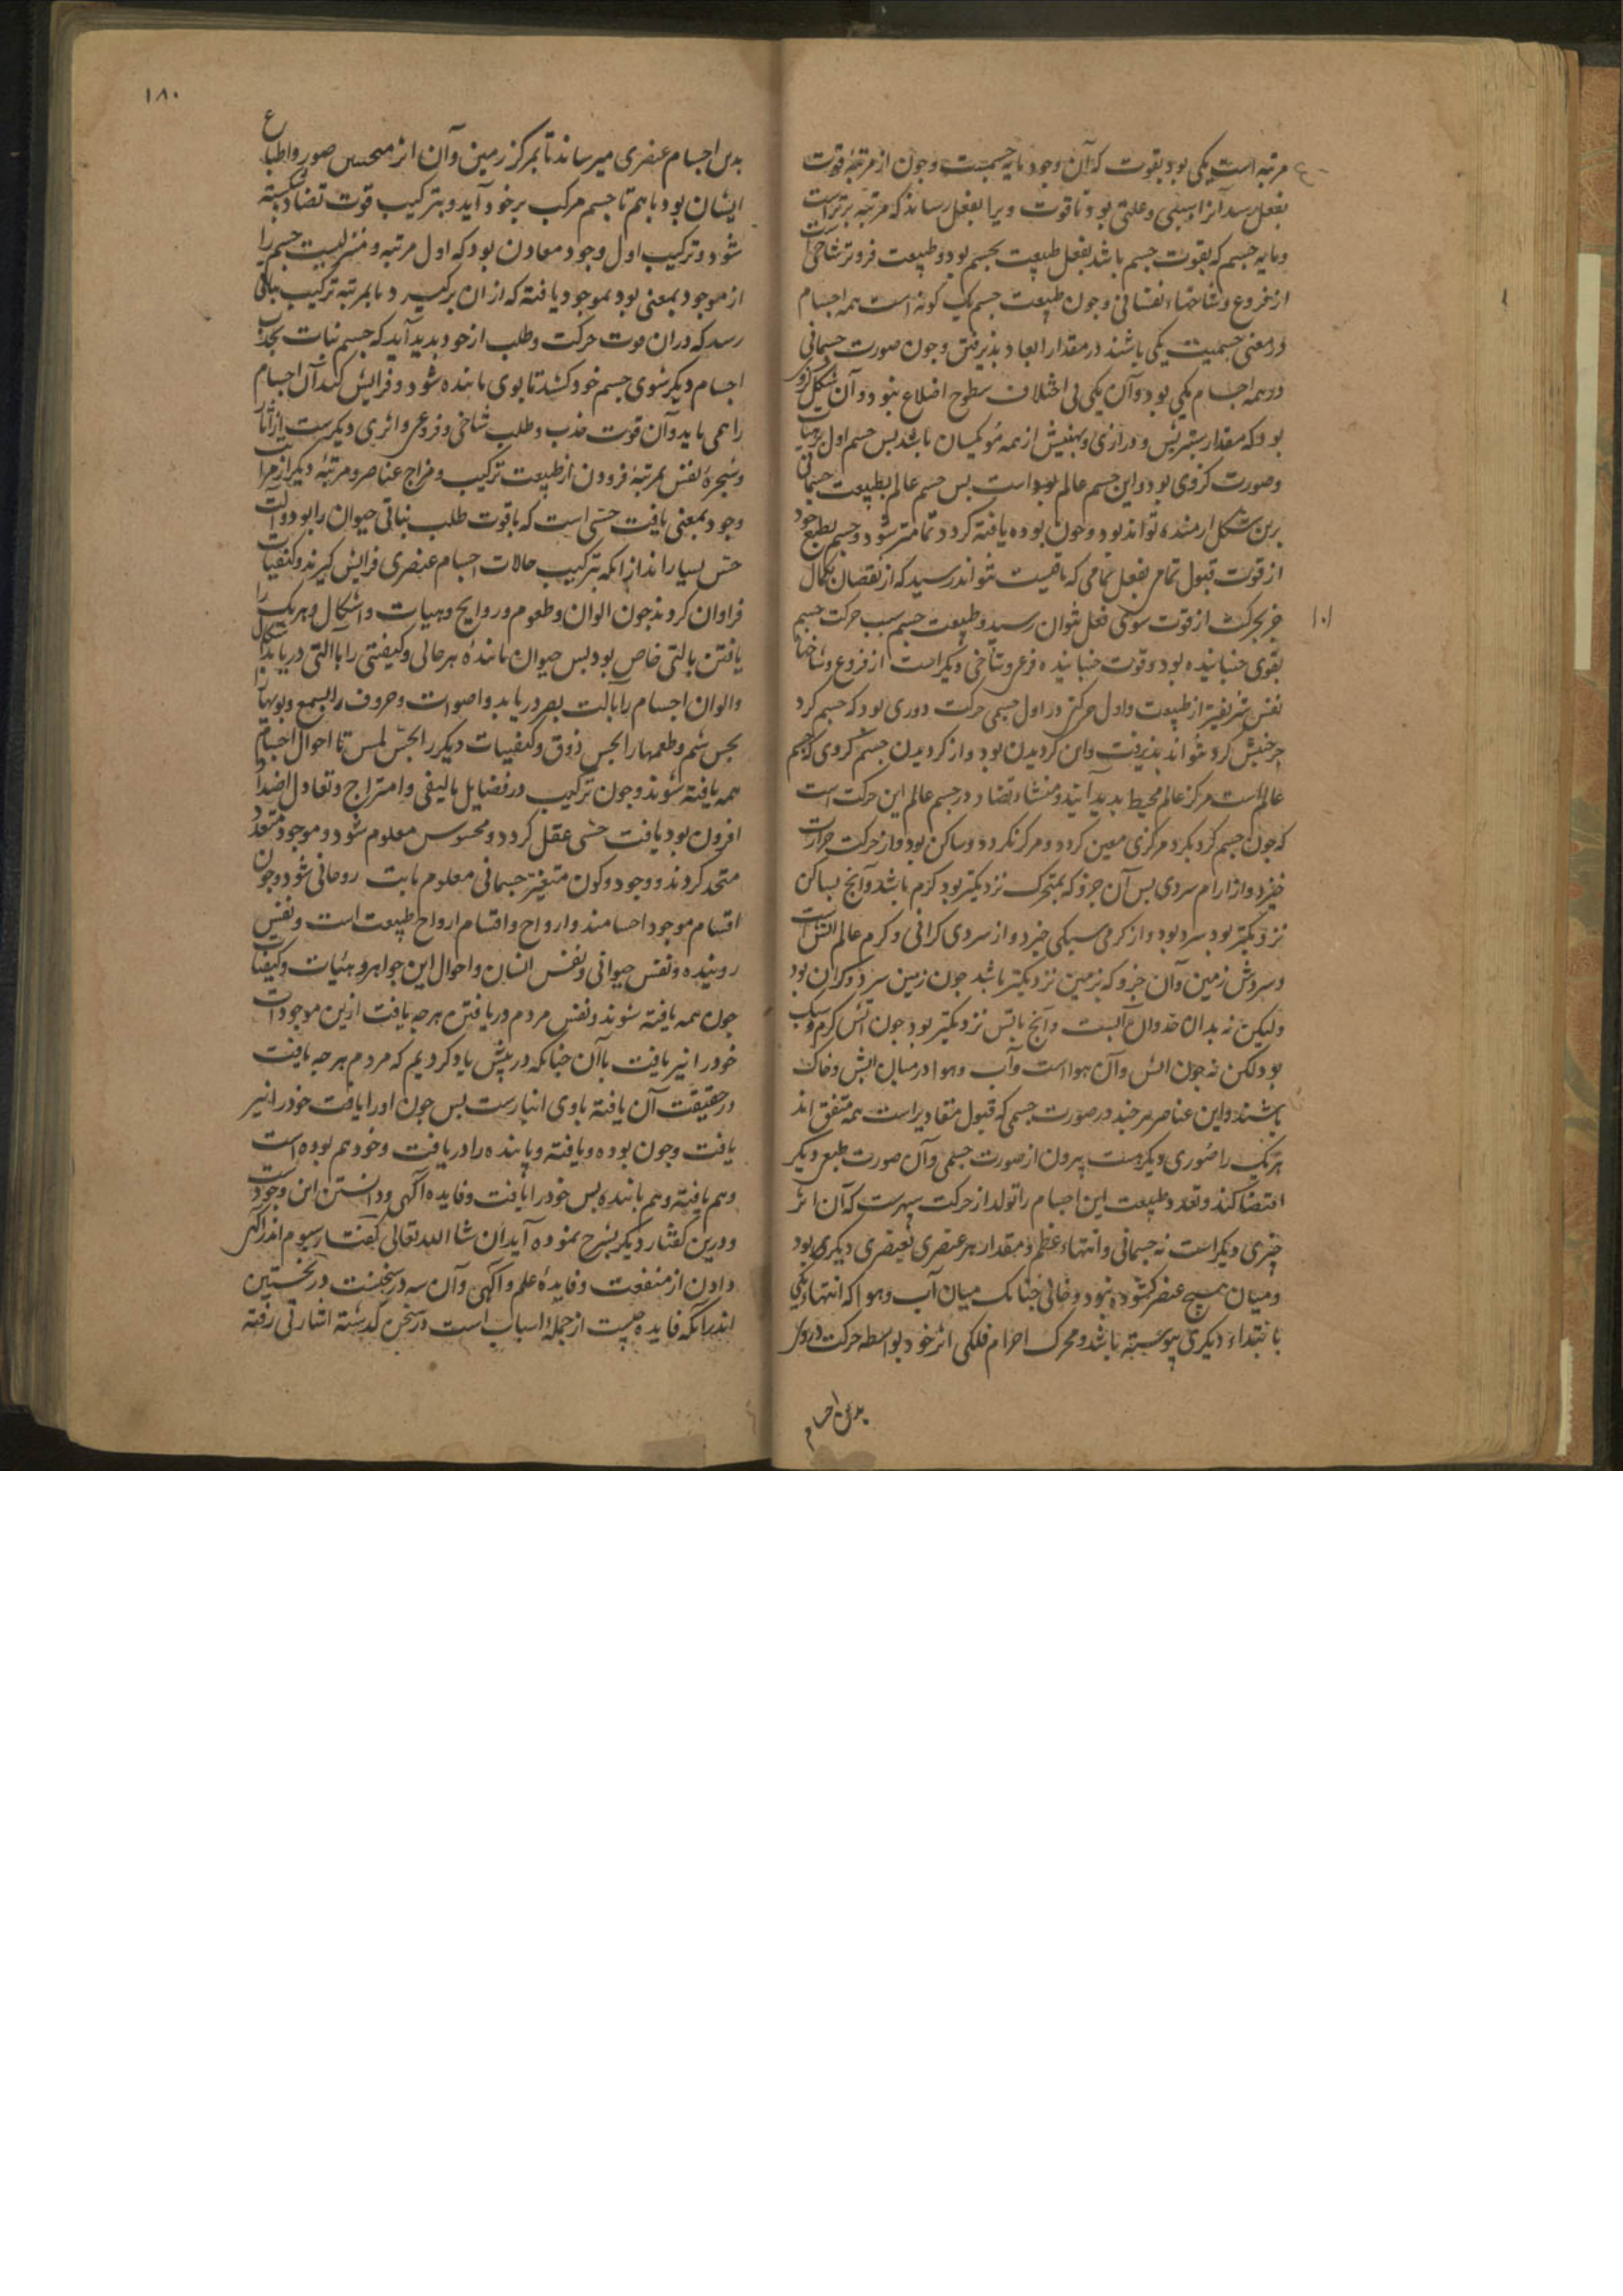 مرتبه است یکی بود بقوت که آن وجود مایه جسمست وجون از مرتبهٔ قوت
بفعل رسد آنرا سببی وعلتی بود تا قوت ویرا بفعل رساند که مرتبه برترست
ومایه جسم که بقوت جسم باشد بفعل طبیعت بجسم بود وطبیعت فروتر شاخی است
از فروع وشاخهاء نفسانی وجون طبیعت جسم یک کونه است همه اجسام
در معنی جسمیت یکی باشند در مقدار ابعاد بذیرفتن وجون صورت جسمانی
در همه اجسام یکی بود وآن یکی بی اختلاف سطوح اضلاع بنود وآن شکل کرو
بود که مقدار ستبریش ودرازی وپهنیش از همه سو یکسان باشد بس جسم اول برهیات
وصورت کروی بود واین جسم عالم بود است بس جسم عالم بطبیعت جسمانی
برین شکل ارمنده تواند بود وجون بوده یافته کردد تمامتر شود وجسم بطبع خود
از قوت قبول تمامی بفعل تمامی که یافتست نتواند رسید که از نقصان بکمال
جز بحرکت از قوت سوی فعل نتوان رسید وطبیعت جسم سبب حرکت جسم
بقوی جنباننده بود وقوت جنباننده فرعی وشاخی دیکر است از فروع وشاخهاء
نفس شریفتر از طبیعت واول حرکتی در اول جسمی حرکت دوری بود که جسم کرد
جز جنبش کرد نتواند بذیرفت واین کردیدن بود واز کردیدن جسم کروی که جسم
عالم است مرکز عالم محیط بدید آیند ومنشاء تضاد در جسم عالم این حرکت است
که جون جسم کرد بکرد مرکزی معین کردد ومرکز نکردد وساکن بود واز حرکت حرارت
خیزد واز ارام سردی بس آن جزو که بمتحرک نزدیکتر بود کرم باشد وآنج بساکن
نزدیکتر بود سرد بود واز کرمی سبکی خیزد واز سردی کرانی وکرم عالم آتش است
وسردش زمین وآن جزو که بزمین نزدیکتر باشد جون زمین سرد وکران بود
ولیکن نه بدان حد وآن آبست وآنج باتش نزدیکتر بود جون آتش کرم وسبک
بود لکن نه جون آتش وآن هوا است وآب وهوا در میان آتش وخاک
باشند واین عناصر هر جند در صورت جسمی که قبول مقادیر است همه متفق اند
هر یک را صوری دیکرست بیرون از صورت جسمی وآن صورت طبع دیکر
اقتضا کند وتعدد طبیعت این اجسام را تولد از حرکت سپهرست که آن اثر
جیزی دیکر است نه جسمانی وانتهاء عظم ومقدار هر عنصری بعنصری دیکری بود
ومیان هیج عنصر کشوده نبود وخالی جنانک میان آب وهوا که انتهاء یکی
بابتداء دیکری پیوسته باشد ومحرک اجرام فلکی اثر خود بواسطه حرکت دروی
بدین اجسام
۱۸۰
بدین اجسام عنصری میرساند تا بمرکز زمین وآن اثر صور واطباع
ایشان بود باهم تا جسم مرکب برخود آید وبترکیب قوت تضاد شکسته
شود وترکیب اول وجود معادن بود که اول مرتبه ومنزلیست جسم را
از موجود بمعنی بود بموجود یافته که از آن برکیرد تا بمرتبه ترکیب نباتی
رسد که در آن قوت حرکت وطلب از خود بدید آید که جسم نبات بجذب
اجسام دیکر سوی جسم خود کشد تا بوی ماننده شود وفزایش کند آن اجسام
را همی باید وآن قوت جذب وطلب شاخی وفرعی واثری دیکرست از آثار
وشجرهٔ نفس بمرتبهٔ فزودن از طبیعت ترکیب ومزاج عناصر ومرتبهٔ دیکر از مراتب
وجود بمعنی یافت حسی است که با قوت طلب نباتی حیوان را بود وآلت
حس بسیار اند از آنکه بترکیب حالات اجسام عنصری فزایش کیرند وکیفیات
فراوان کردند جون الوان وطعوم وروایح وهیات واشکال وهر یک را
یافتن بالتی خاص بود بس حیوان یابندهٔ هر حالی وکیفیتی را با التی دریابد اشکال
والوان اجسام را بالت بصر دریابد واصوات وحروف را بسمع وبویها را
بحس شم وطعمها را بحس ذوق وکیفیات دیکر را بحس لمس تا احوال اجسام
همه یافته شوند وجون ترکیب در فضایل تالیفی وامتزاج وتعادل اضداد
افزون بود یافت حسی عقل کردد ومحسوس معلوم شود وموجود متعدد
متحد کردند ووجود وکون متغیر جسمانی معلوم ثابت روحانی شود وجون
اقسام موجود اجسامند وارواح واقسام ارواح طبیعت است ونفس
روینده ونفس حیوانی ونفس انسان واحوال این جواهر وهئیات وکیفیات
جون همه یافته شوند ونفس مردم دریافتن هرجه یافت ازین موجودات
خود را نیز یافت با آن جنانکه در پیش یاد کردیم که مردم هرجه یافت
در حقیقت آن یافته با وی انبازست بس جون او را یافت خود را نیز
یافت وجون بوده ویافته ویابنده را دریافت وخود هم بوده است
وهم یافته وهم یابنده بس خود را یافت وفایده آکهی ودانستن این وجودست
ودرین کفتار دیکر بشرح نموده آید ان شا الله تعالی کفتار سیوم اندر آکهی
دادن از منفعت وفایدهٔ علم وآکهی وآن سه در سخنست در نخستین
اندر آنکه فایده جیست از جملهٔ اسباب است در سخن کدشته اشارتی رفته